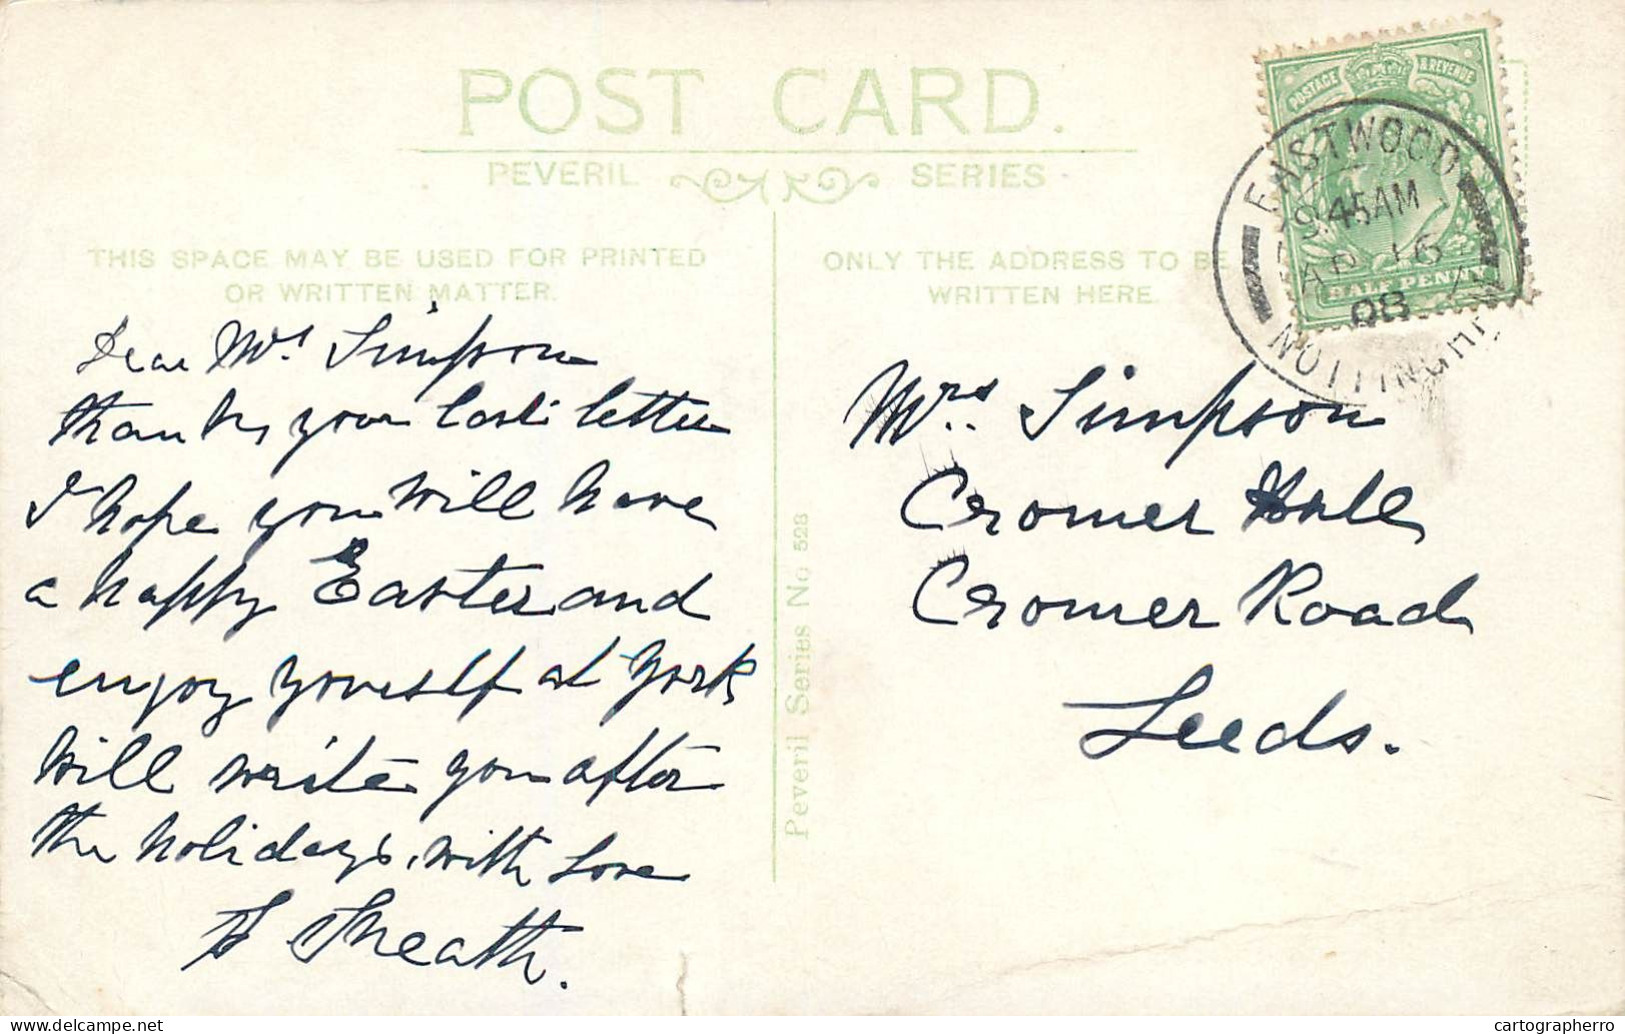 POST CARD.
PEVERIL SERIES
THIS SPACE MAY BE USED FOR PRINTED
OR WRITTEN MATTER.
Dear Mrs Simpson
thanks your last letter
I hope you will have
a happy Easter and
enjoy yourself at York
will write you after
the holidays, with love
Peveril Series No 528
ONLY THE ADDRESS TO BE
WRITTEN HERE
Mrs. Simpson
Cromer Hall
Cromer Road
Leeds.
POSTAGE & REVENUE
HALF PENNY
EASTWOOD
9.45AM
AP 16
08
cartographerro
www.delcampe.net